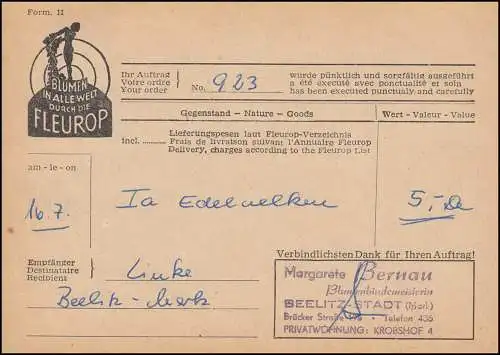 Form. 11
BLUMEN
IN ALLE WELT
DURCH DIE
FLEUROP
Ihr Auftrag
Votre ordre
Your order
No. 923
wurde pünktlich und sorgfältig ausgeführt
a été executé avec ponctualité et soin
has been executed punctually and carefully
Gegenstand – Nature – Goods
Wert – Valeur – Value
incl. ..........
Lieferungspesen laut Fleurop-Verzeichnis
Frais de livraison suivant l'Annuaire Fleurop
Delivery, charges according to the Fleurop List
am - le - on
16.7.
Ia Edelnelken
5,-
Empfänger
Destinataire
Recipient
Linke
Beelitz-Mark
Verbindlichsten Dank für Ihren Auftrag!
Margarete Bernau
Blumenbindemeisterin
BEELITZ-STADT (Mark)
Brücker Straße Telefon 435
PRIVATWOHNUNG: KROBSHOF 4